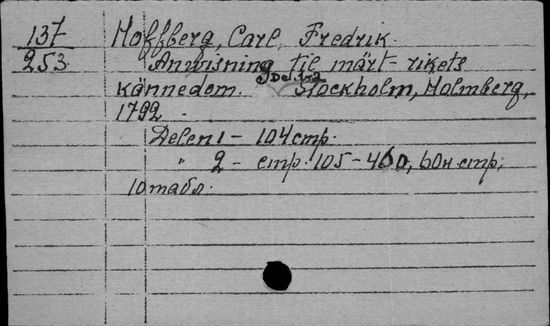 137 Hoffberg, Carl Fredrik.
253 Anwisning til wäxt-rikets
kännedom. Del 1-2 Stockholm, Holmberg,
1792.
Delen 1 - 104 стр.
" 2 - стр. 105-400, 60н стр;
10 табл.